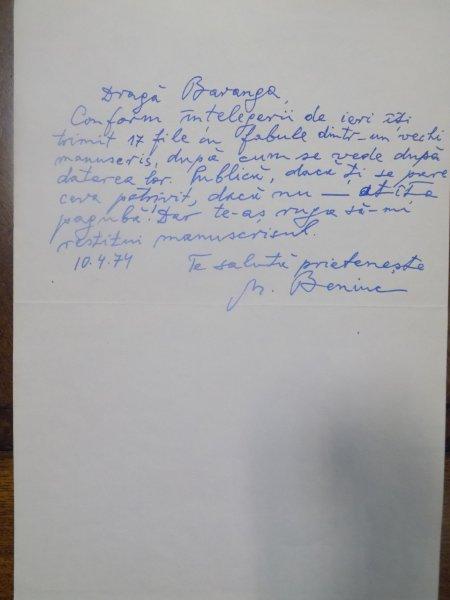 Dragă Baranga,
Conform înțelegerii de ieri îți
trimit 17 file cu fabule dintr-un vechi
manuscris, după cum se vede după
datarea lor. Publică, dacă ți se pare
ceva potrivit, dacă nu — atîta
pagubă! Dar te-aș ruga să-mi
restitui manuscrisul.
10.4.74 Te salută prietenește
M. Beniuc